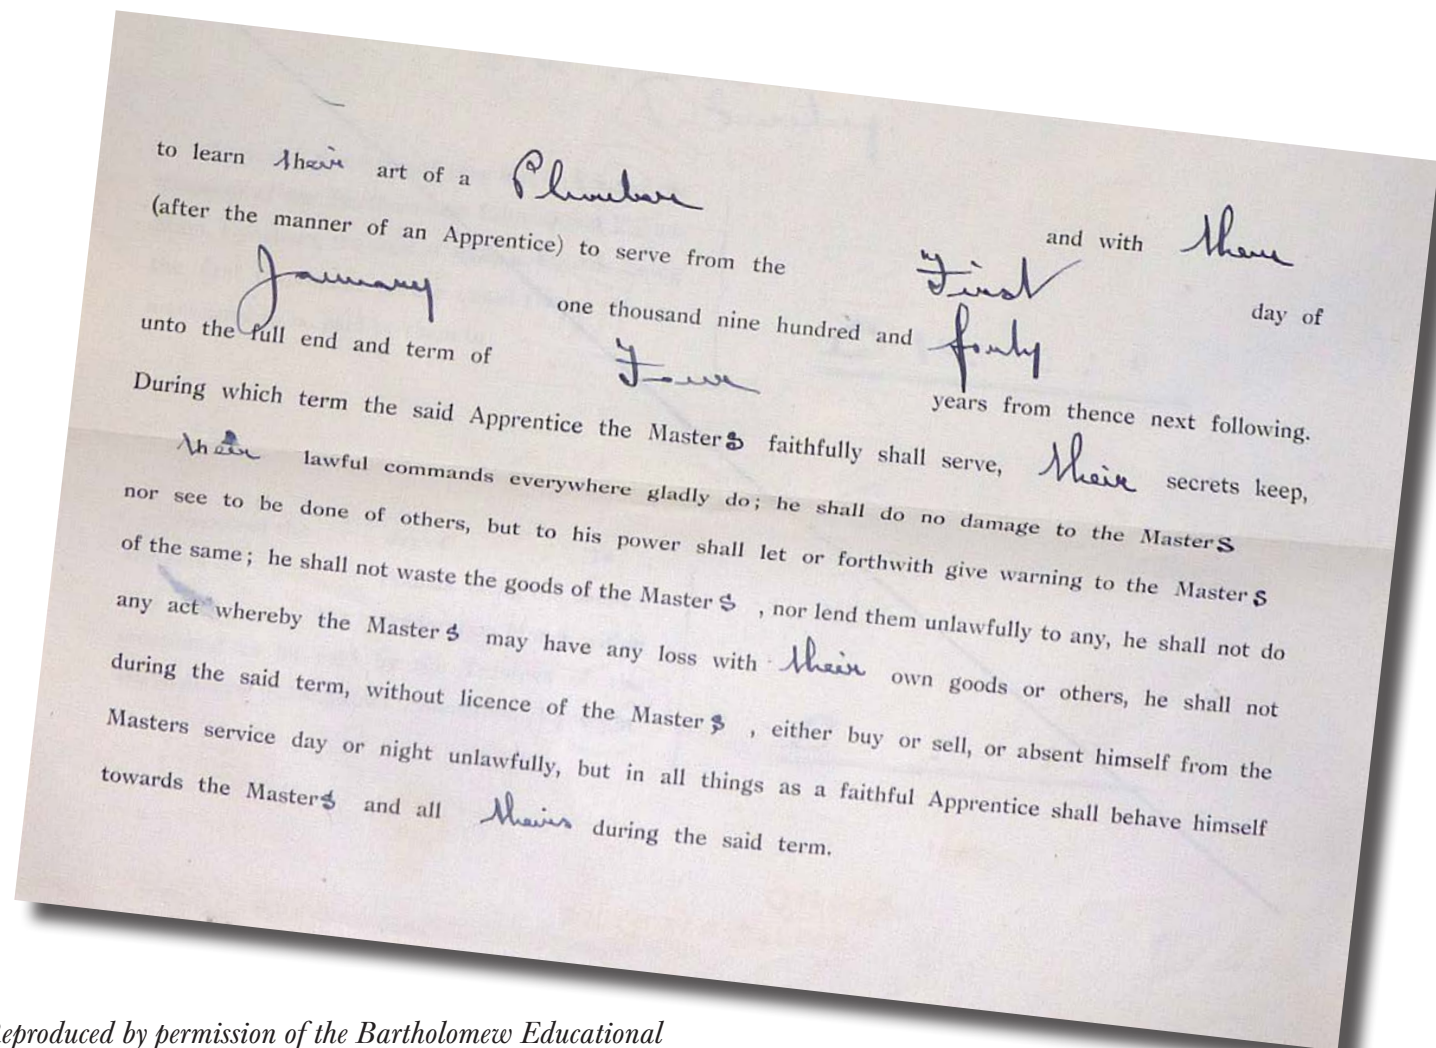 to learn their art of a Plumber and with them
(after the manner of an Apprentice) to serve from the First day of
January one thousand nine hundred and forty
unto the full end and term of Four years from thence next following.
During which term the said Apprentice the Masters faithfully shall serve, their secrets keep,
their lawful commands everywhere gladly do; he shall do no damage to the Masters
nor see to be done of others, but to his power shall let or forthwith give warning to the Masters
of the same; he shall not waste the goods of the Masters, nor lend them unlawfully to any, he shall not do
any act whereby the Masters may have any loss with their own goods or others, he shall not
during the said term, without licence of the Masters, either buy or sell, or absent himself from the
Masters service day or night unlawfully, but in all things as a faithful Apprentice shall behave himself
towards the Masters and all theirs during the said term.
eproduced by permission of the Bartholomew Educational